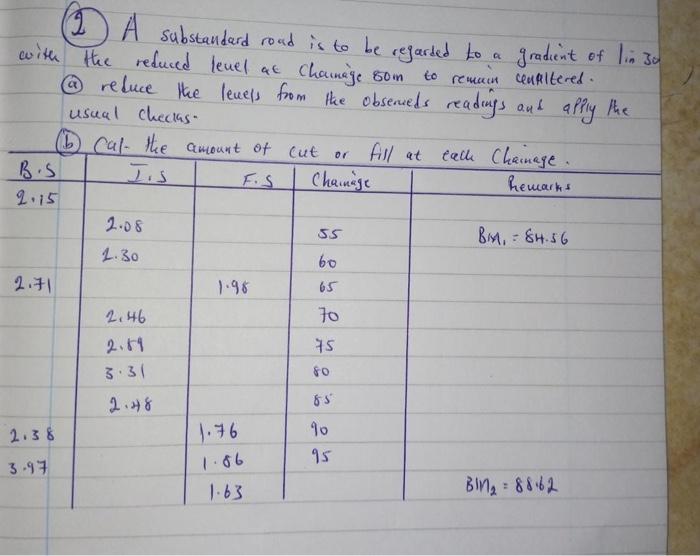 (2) A substandard road is to be regarded to a gradient of 1 in 30
with the reduced level at Chainage 80m to remain unaltered.
(a) reduce the levels from the observeds readings and apply the
usual checks.
(b) Cal- the amount of cut or fill at each Chainage.
B.S I.S F.S Chainage Remarks
2.15
2.08 55 BM1 = 84.56
2.30 60
2.71 1.98 65
2.46 70
2.89 75
3.31 80
2.48 85
2.38 1.76 90
3.97 1.86 95
1.63 BM2 = 88.62